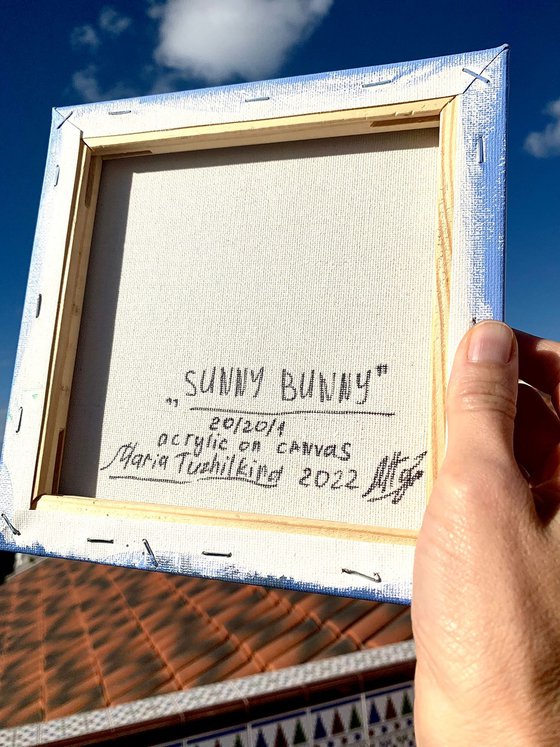 „SUNNY BUNNY"
20/20/1
acrylic on canvas
Maria Tuzhilkina 2022